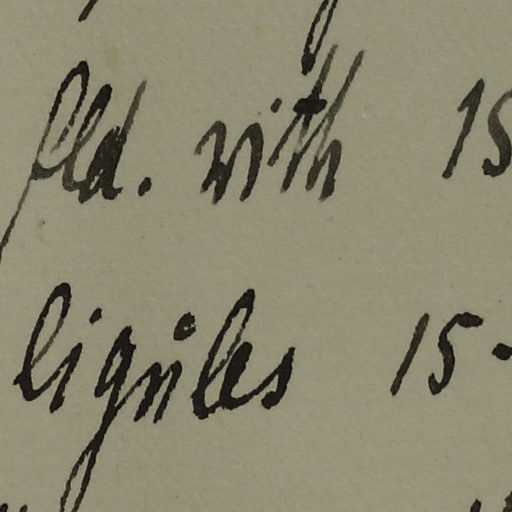 fld. with 15
ligules 15-